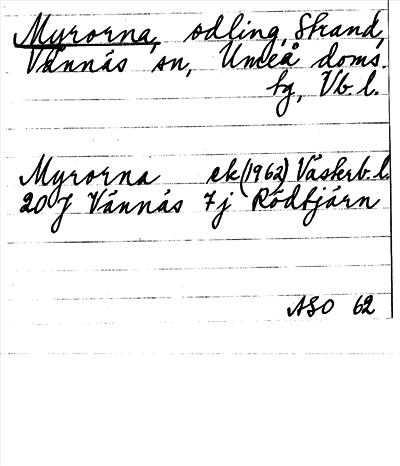 Myrorna, odling, Strand,
Vännäs sn, Umeå doms.
tg, Vb. l.
Myrorna ek (1962) Västerb. l.
20 J Vännäs 7j Rödtjärn
ASO 62